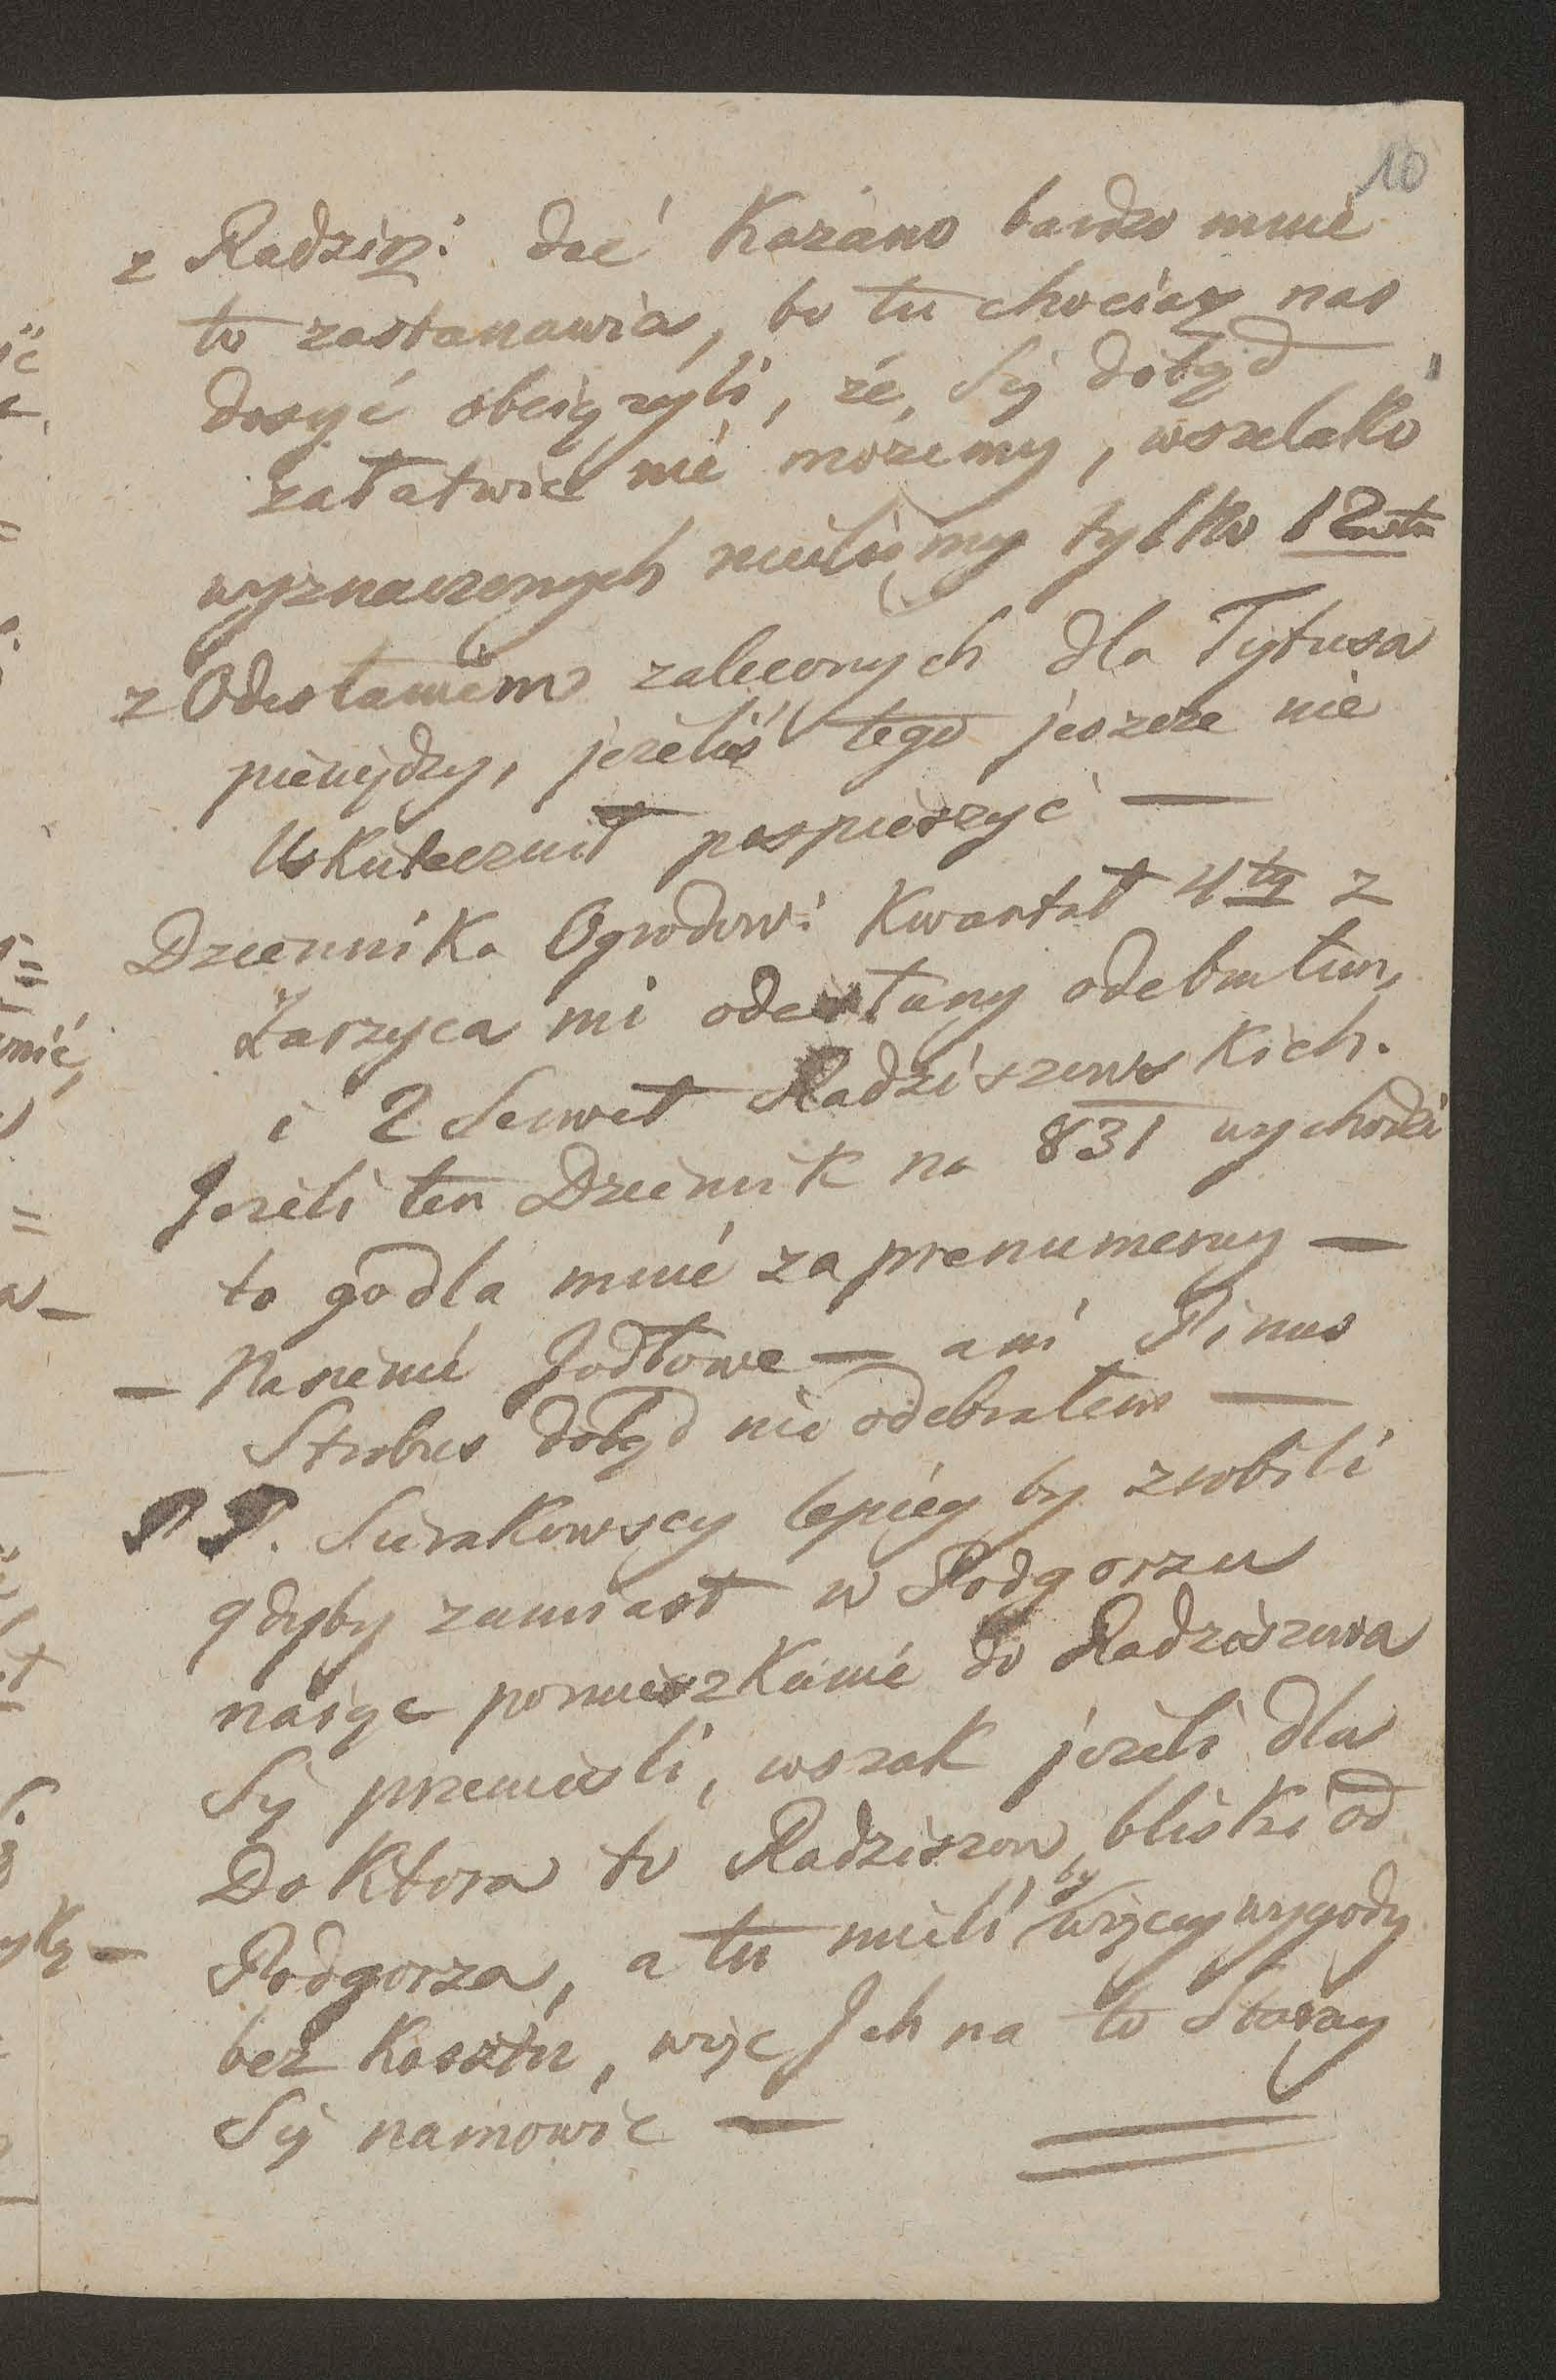 10
z Radzisz: dać Kazano bardzo mnie
to zastanawia, bo tu chociasz nas
dosyć obciążyli, że Się dotąd
załatwić nie możemy, wszelako
wyznaczonych mieliśmy tylko 12
z Odesłaniem zaleconych dla Tytusa
pieniędzy, jeżeliś tego jeszcze nie
Uskutecznił pospieszyć —
Dziennika Ogrodowi Kwartał 4ty z
Zarzyca mi odesłany odebrałem,
i 2 Serwet Radziszewskich.
Jeżeli ten Dziennik na 831 wychodzi
to go dla mnie zaprenumeruy —
— Nasienie Jodłowe — ani Pinus
Strobus dotąd nie odebrałem —
P P. Sierakowscy lepiey by zrobili
gdyby zamiast w Podgorzu
nająć pomieszkanie do Radziszowa
Się przenieśli, wszak jeżeli dla
Doktora to Radziszow bliski od
Podgorza, a tu mieli by więcey wygody
bez Kosztu, więc Ich na to Staray
Się namowić —